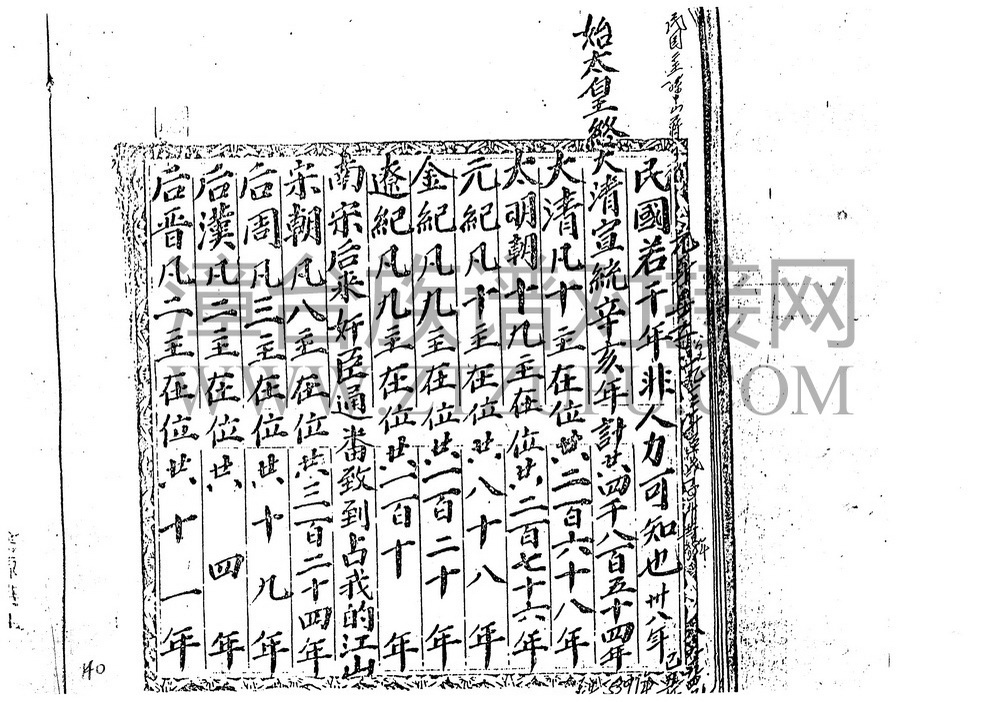 始太皇終
民國若干年非人力可知也卅八年
大清宣統辛亥年計共四千八百五十四年
大清凡十主在位共二百六十八年
大明朝十九主在位共二百七十六年
元紀凡十主在位共八十八年
金紀凡九主在位共一百二十年
遼紀凡九主在位共二百十年
南宋后來奸臣通番致到占我的江山
宋朝凡八主在位共三百二十四年
后周凡三主在位共十九年
后漢凡二主在位共四年
后晋凡二主在位共十一年
40
漳台族谱对接网
WWW.ZTZUPU.COM